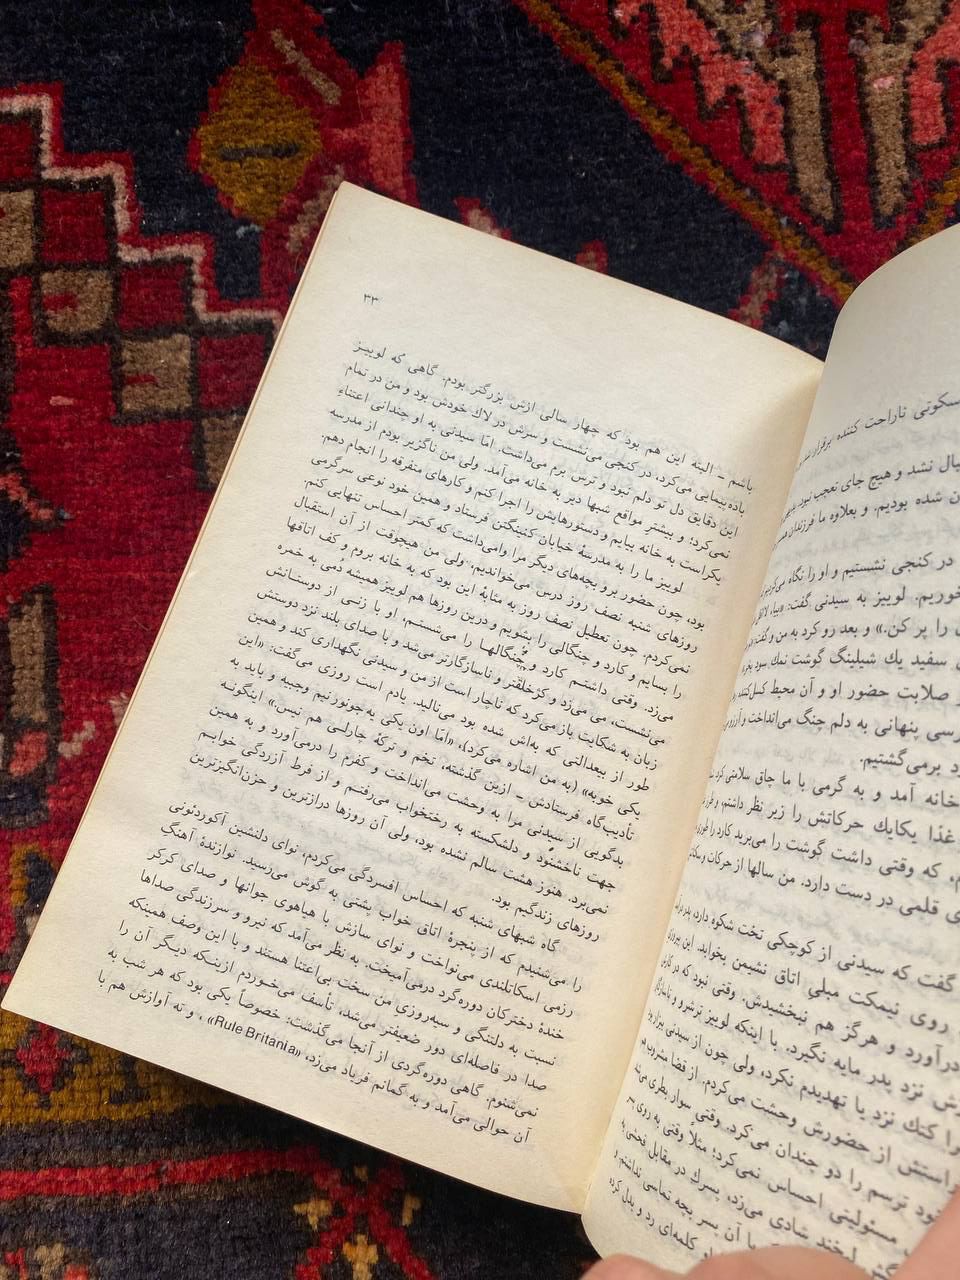 ۳۳
باشم ـ البته این هم بود که چهار سالی ازش بزرگتر بودم. گاهی که لوییز
باده‌پیمایی می‌کرد، در کنجی می‌نشست و سرش در لاک خودش بود و من در تمام
این دقایق دل تو دلم نبود و ترس برم می‌داشت. امّا سیدنی به او چندانی اعتناء
نمی‌کرد؛ و بیشتر مواقع شبها دیر به خانه می‌آمد. ولی من ناگزیر بودم از مدرسه
یکراست به خانه بیایم و دستورهایش را اجرا کنم و کارهای متفرقه را انجام دهم.
لوییز ما را به مدرسهٔ خیابان کنینگتن فرستاد و همین خود نوعی سرگرمی
بود، چون حضور برو بچه‌های دیگر مرا وامی‌داشت که کمتر احساس تنهایی کنم.
روزهای شنبه نصف روز درس می‌خواندیم. ولی من هیچوقت از آن استقبال
نمی‌کردم. چون تعطیل نصف روز به مثابهٔ این بود که به خانه بروم و کف اتاقها
را بسایم و کارد و چنگالی را بشویم و درین روزها هم لوییز همیشه دمی به خمره
می‌زد. وقتی داشتم کارد و چنگالها را می‌شستم، او با زنی از دوستانش
می‌نشست، می می‌زد و کژخلقتر و ناسازگارتر می‌شد و با صدای بلند نزد دوستش
زبان به شکایت باز می‌کرد که ناچار است از من و سیدنی نگهداری کند و همین
طور از بیعدالتی که به‌اش شده بود می‌نالید. یادم است روزی می‌گفت: «این
یکی خوبه» (به من اشاره می‌کرد)، «امّا اون یکی یه جونورنیم وجبیه و باید به
تأدیب‌گاه فرستادش ـ ازین گذشته، تخم و ترکهٔ چارلی هم نیس.» اینگونه
بدگویی از سیدنی مرا به وحشت می‌انداخت و کفرم را درمی‌آورد و به همین
جهت ناخشنود و دلشکسته به رختخواب می‌رفتم و از فرط آزردگی خوابم
نمی‌برد. هنوز هشت سالم نشده بود، ولی آن روزها درازترین و حزن‌انگیزترین
روزهای زندگیم بود.
گاه شبهای شنبه که احساس افسردگی می‌کردم، نوای دلنشین آکوردئونی
را می‌شنیدم که از پنجرهٔ اتاق خواب پشتی به گوش می‌رسید. نوازندهٔ آهنگ
رزمی اسکاتلندی می‌نواخت و نوای سازش با هیاهوی جوانها و صدای کرکر
خندهٔ دخترکان دوره‌گرد درمی‌آمیخت. به نظر می‌آمد که نیرو و سرزندگی صداها
نسبت به دلتنگی و سیه‌روزی من سخت بی‌اعتنا هستند و با این وصف همینکه
صدا در فاصله‌ای دور ضعیفتر می‌شد، تأسف می‌خوردم ازینکه دیگر آن را
نمی‌شنوم. گاهی دوره‌گردی از آنجا می‌گذشت: خصوصاً یکی بود که هر شب به
آن حوالی می‌آمد و به گمانم فریاد می‌زد، «Rule Britania» ، و ته آوازش هم با
سکوتی ناراحت کننده برقرار
یال نشد و هیچ جای تعجب نبود،
ن شده بودیم. و بعلاوه ما فرزندان
در کنجی نشستیم و او را نگاه می‌کردیم
خوریم. لوییز به سیدنی گفت: «بیا،
را پر کن.» و بعد رو کرد به من و گفت
سفید یک شیلینگ گوشت نمک سود
صلابت حضور او و آن محیط کسل‌کننده
رسی پنهانی به دلم چنگ می‌انداخت و آرزو
د برمی‌گشتیم.
خانه آمد و به گرمی با ما چاق سلامتی کرد
غذا یکایک حرکاتش را زیر نظر داشتم،
که وقتی داشت گوشت را می‌برید کارد را
ی قلمی در دست دارد. من سالها از حرکات
گفت که سیدنی از کوچکی تخت شکوه دارد، پدر
روی نیمکت مبلی اتاق نشیمن بخوابد. این
درآورد و هرگز هم نبخشیدش. وقتی نبود که
ش نزد پدر مایه نگیرد. با اینکه لوییز ترشرو و
را کتک نزد یا تهدیدم نکرد، ولی چون از سیدنی بیزار بود
راستش از حضورش وحشت می‌کردم. از قضا مشروب هم
خود ترسم را دو چندان می‌کرد. وقتی سوار بطری می‌شد
مسئولیتی احساس نمی‌کرد؛ مثلاً وقتی به روی پسر
لبخند شادی می‌زد، پسرک در مقابل فحشی به
با آن پسر بچه تماسی نداشتم و
او کلمه‌ای رد و بدل کرده